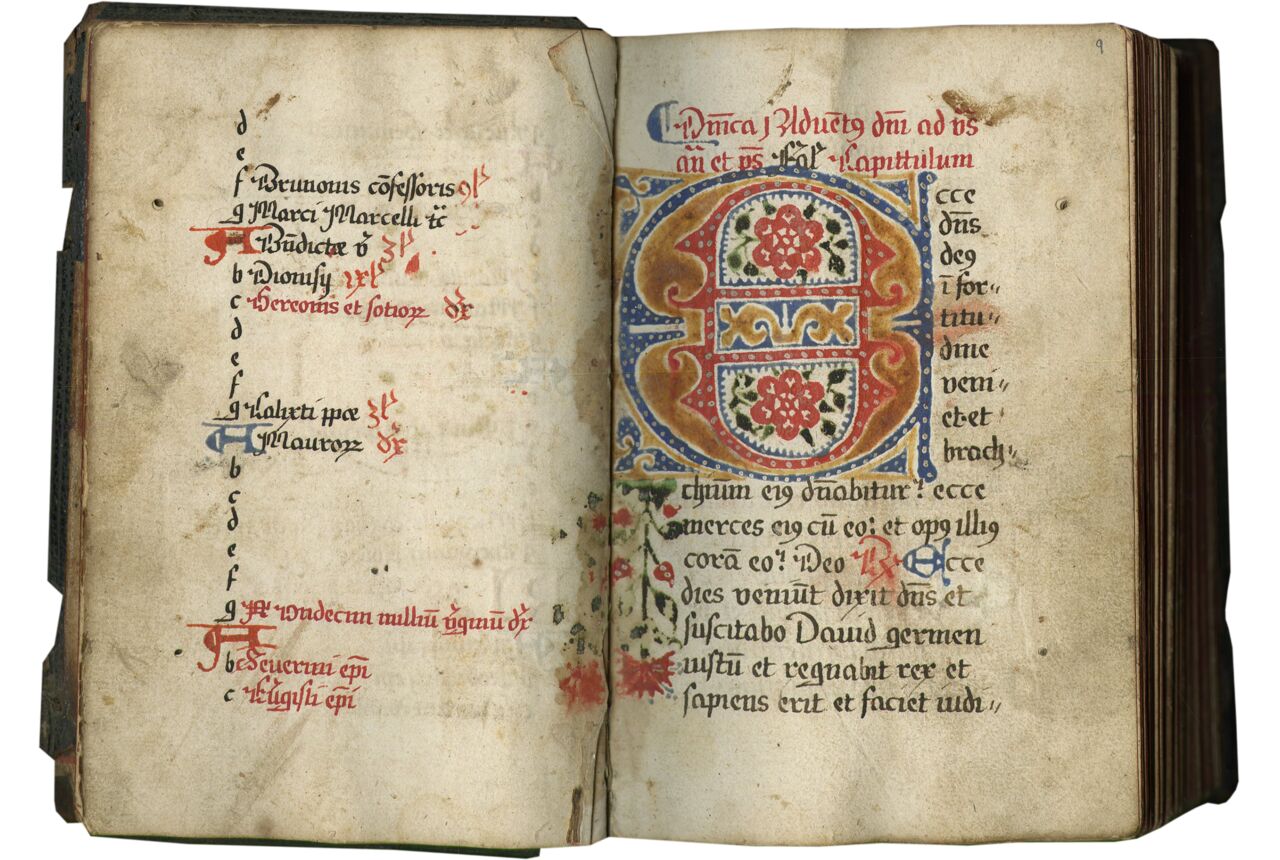 d
e
f Brunonis cōfessoris 9 l
g Marci Marcelli tc̄
A Bn̄dictæ v̄ 3 l
b Dionisÿ ix l
c Gereonis et sotioꝝ dx
d
e
f
g Calixti ppæ 3 l
A Mauroꝝ dx
b
c
d
e
f
g Undecim milliū v̄ginū dx
A
b Seuerini ep̄i
c Eūgisli ep̄i
9
Dn̄ica j Aduētꝯ dn̄i ad v̄s
an̄ et p̄s Capittulum
Ecce
dn̄s
deꝯ
ī for〃
titu〃
dine
veni〃
et·et
brach〃
chium eiꝯ dn̄abitur: ecce
merces eiꝯ cū eo: et opꝯ illiꝯ
corā eo: Deo ℟ Ecce
dies veniūt dixit dn̄s et
suscitabo Dauid germen
iustū et regnabit rex et
sapiens erit et faciet iudi〃